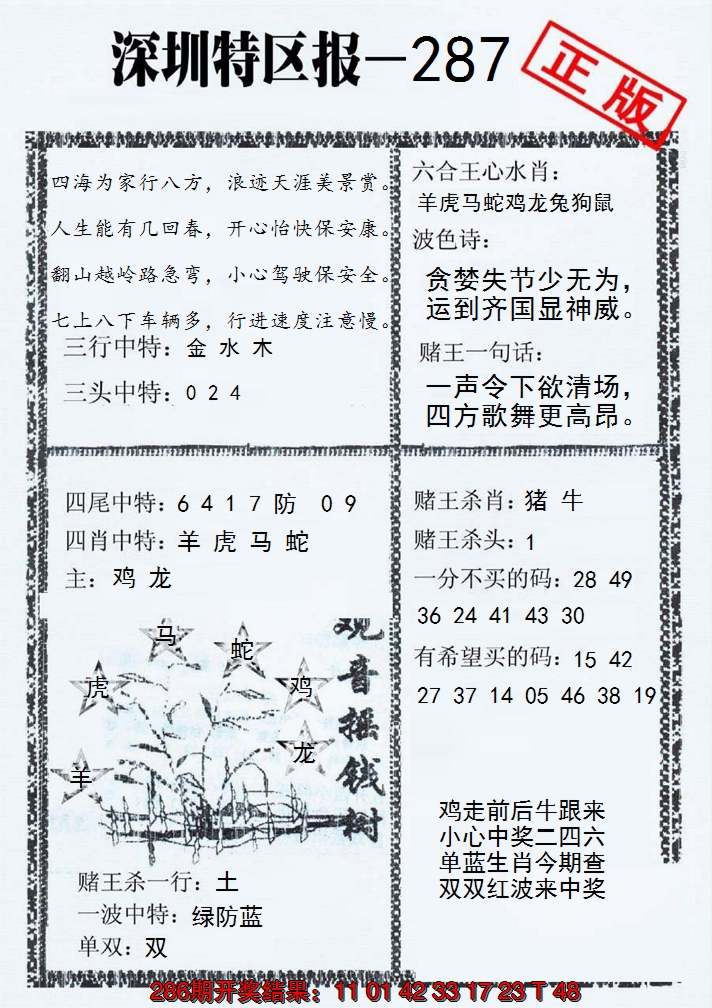 深圳特区报—287
正版
四海为家行八方，浪迹天涯美景赏。
人生能有几回春，开心怡快保安康。
翻山越岭路急弯，小心驾驶保安全。
七上八下车辆多，行进速度注意慢。
三行中特：金 水 木
三头中特：0 2 4
六合王心水肖：
羊虎马蛇鸡龙兔狗鼠
波色诗：
贪婪失节少无为，
运到齐国显神威。
赌王一句话：
一声令下欲清场，
四方歌舞更高昂。
四尾中特：6 4 1 7 防 0 9
四肖中特：羊 虎 马 蛇
主：鸡 龙
马
蛇
虎
鸡
龙
羊
观音摇钱树
赌王杀一行：土
一波中特：绿防蓝
单双：双
赌王杀肖：猪 牛
赌王杀头：1
一分不买的码：28 49
36 24 41 43 30
有希望买的码：15 42
27 37 14 05 46 38 19
鸡走前后牛跟来
小心中奖二四六
单蓝生肖今期查
双双红波来中奖
286期开奖结果：11 01 42 33 17 23 T 48